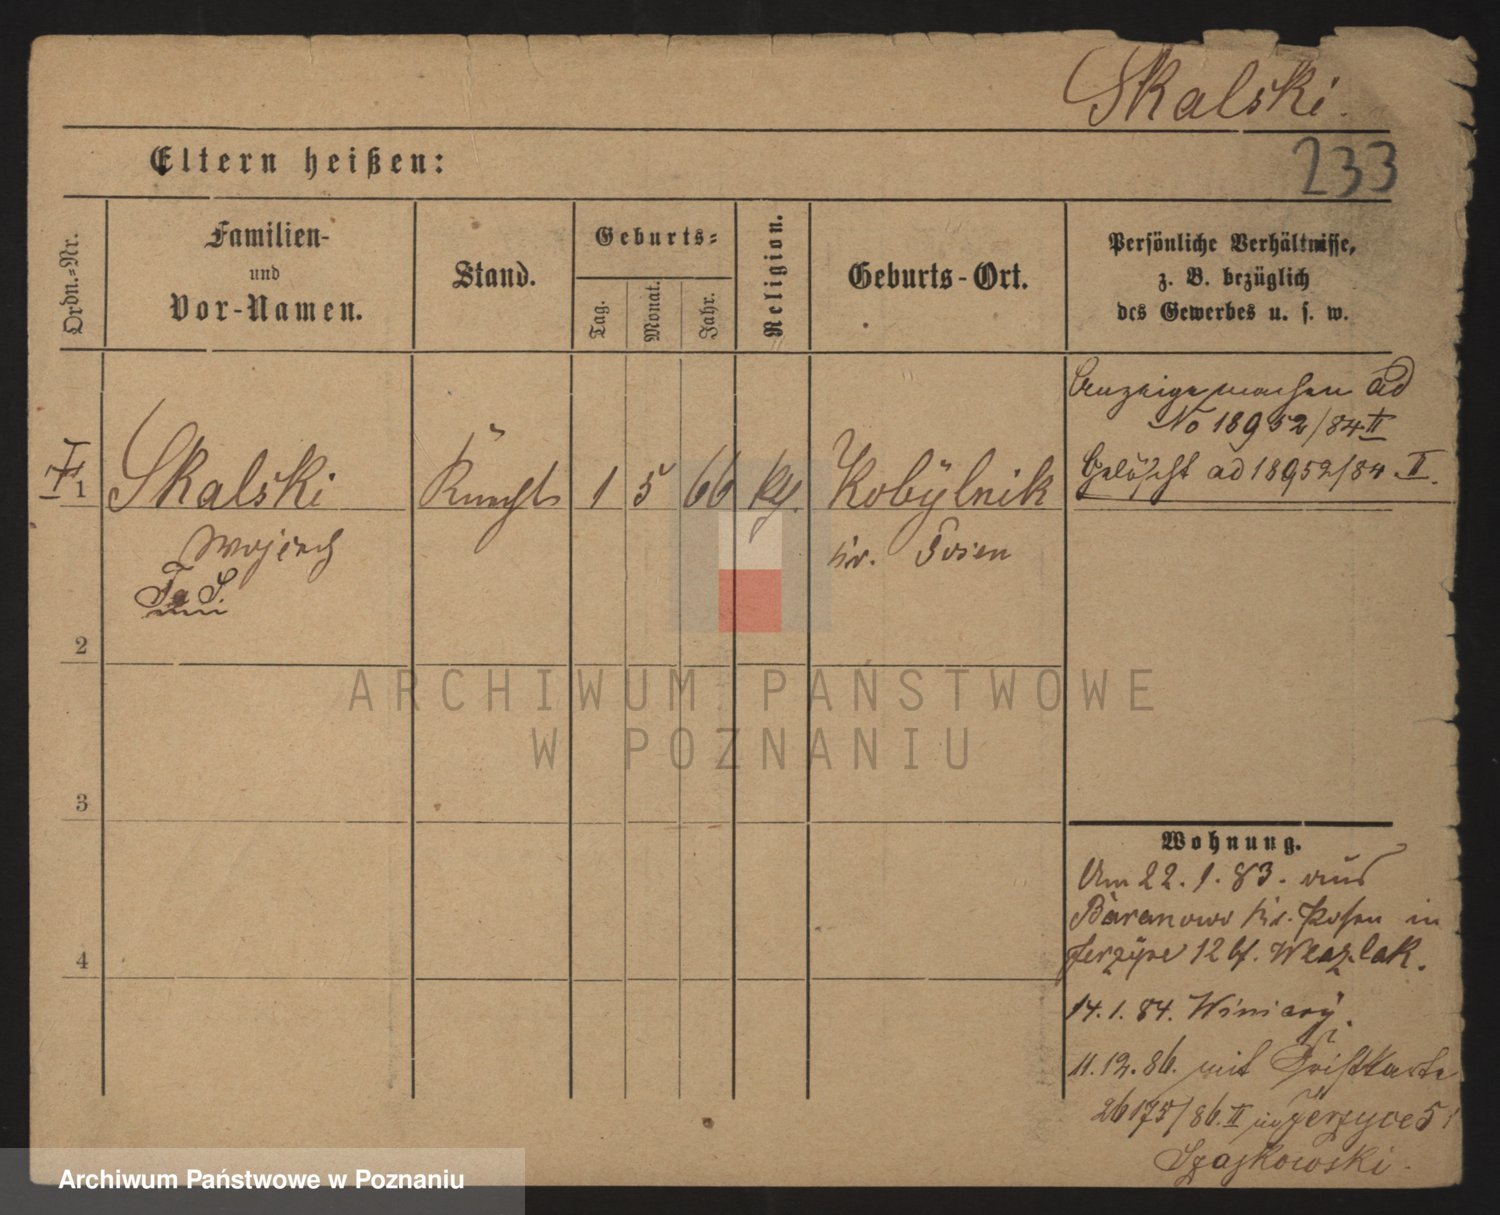 Skalski.
Eltern heißen:
233
Ordn.-Nr.
Familien-
und
Vor-Namen.
Stand.
Geburts-
Tag.
Monat.
Jahr.
Religion.
Geburts-Ort.
Persönliche Verhältnisse,
z. B. bezüglich
des Gewerbes u. s. w.
Anzeige machen ad
No 18952/84 II
Gelöscht ad 18952/84 II.
1 Skalski Knecht 1 5 66 Kobylnik
Wojciech Kr. Posen
2
3
4
Wohnung.
Am 22.1.83. aus
Baranowo Kr. Posen in
Jerzyce 12 b.
14.1.84. Winiary.
11.12.86. mit
26175/86. II in Jerzyce 5
Szajkowski.
ARCHIWUM PAŃSTWOWE
W POZNANIU
Archiwum Państwowe w Poznaniu